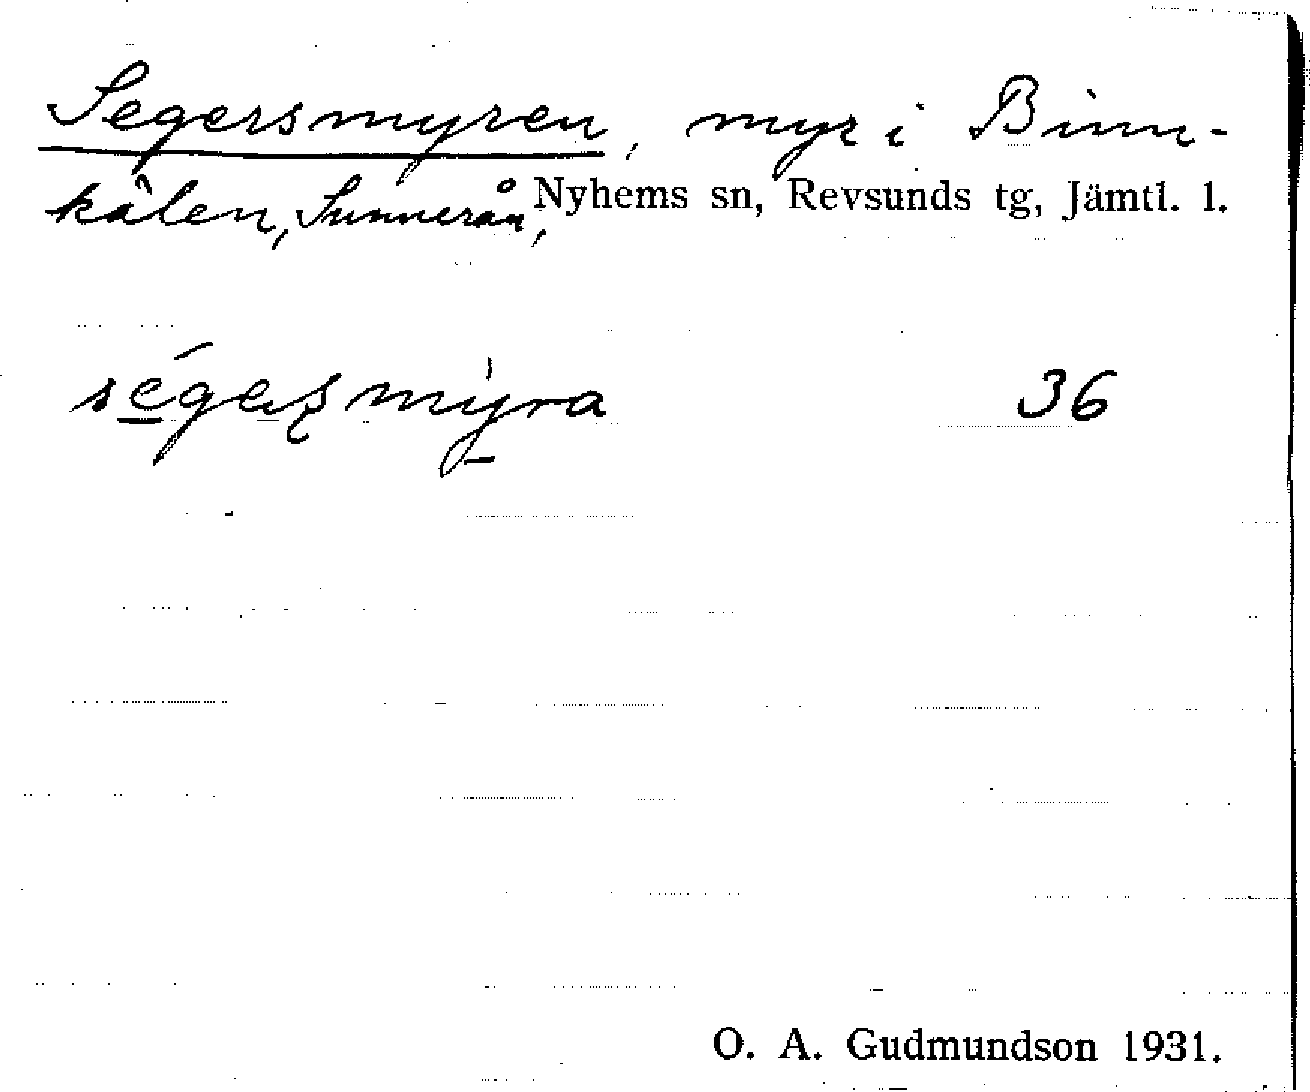 Segersmyren, myr i Binn-
kålen, Sunnerån, Nyhems sn, Revsunds tg, Jämtl. l.
ségersmỳra 36
O. A. Gudmundson 1931.